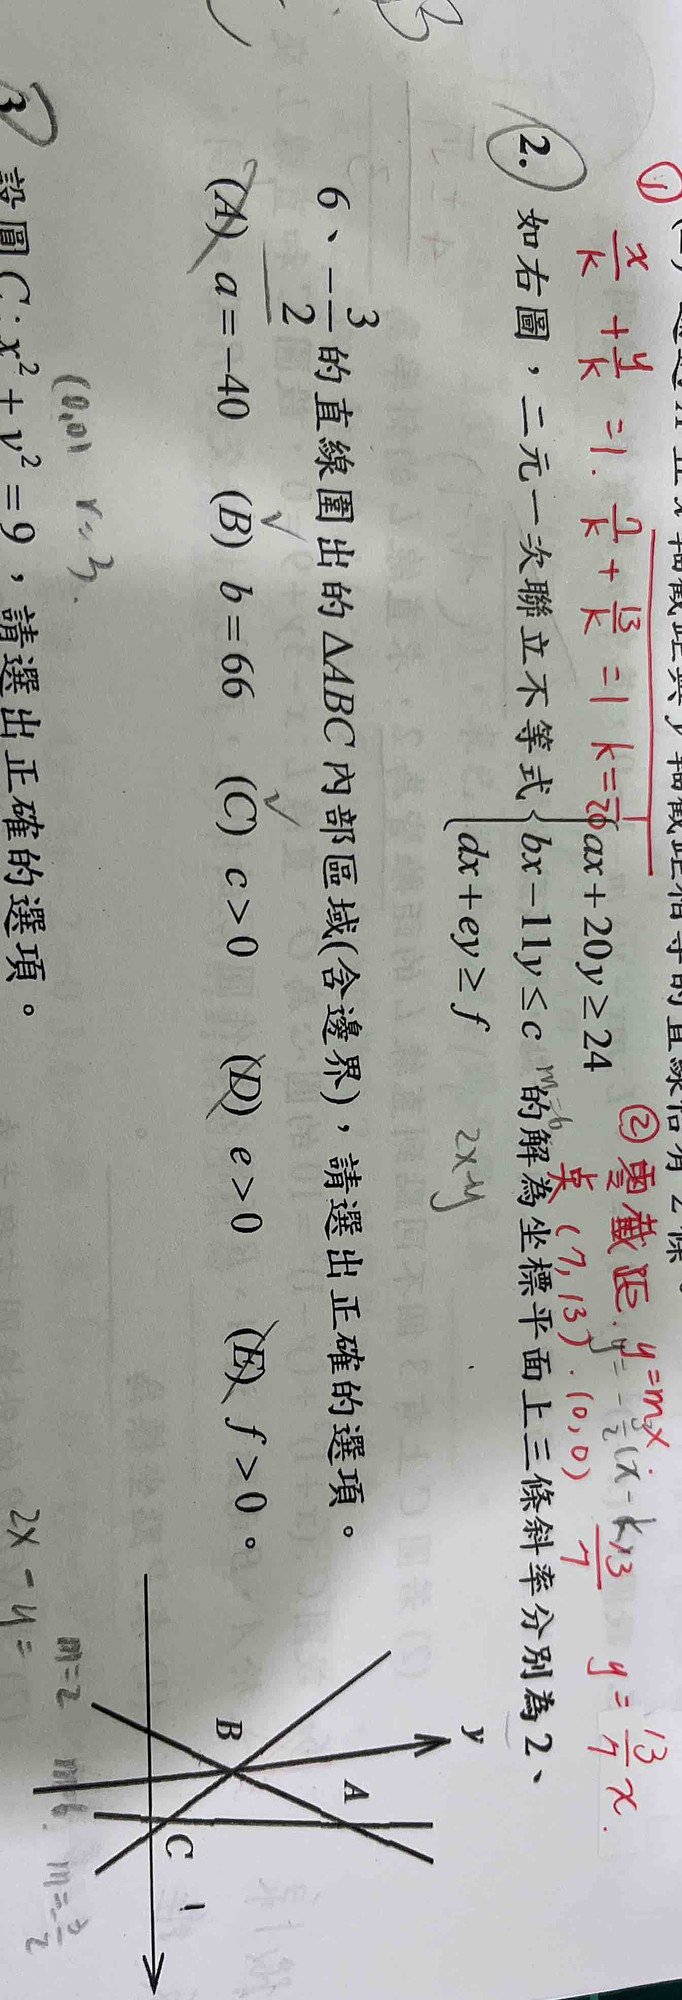 ① x/k + y/k = 1. 7/k + 13/k = 1 k=20
② 零截距. y=mx
点 (7,13). (0,0) 13/7 y = 13/7 x.
2. 如右圖，二元一次聯立不等式 { ax+20y≥24
bx−11y≤c 的解為坐標平面上三條斜率分別為2、
dx+ey≥f
m=6
2x-y
6、−3/2 的直線圍出的ΔABC內部區域(含邊界)，請選出正確的選項。
(A) a=−40 (B) b=66 (C) c>0 (D) e>0 (E) f>0。
y
A
B
C
(0,0) r=3.
m=2 m=6. m=-3/2
3 設圓C:x²+y²=9，請選出正確的選項。
2x-y=